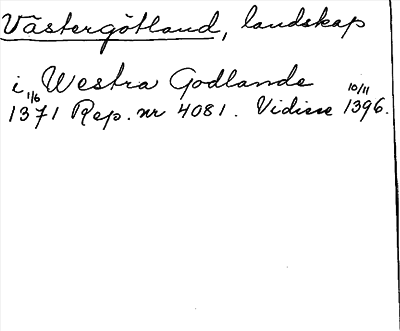 Västergötland, landskap
i Westra Godlande
1/6 10/11
1371 Rep. nr 4081. Vidisse 1396.